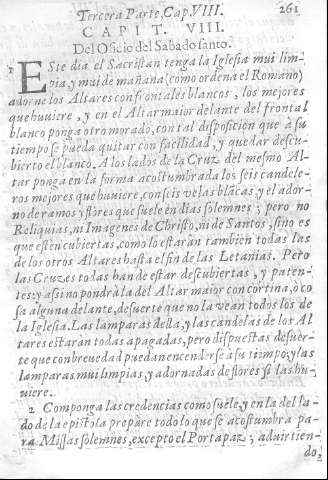 Tercera Parte, Cap. VIII. 261
CAPIT. VIII.
Del Oficio del Sabado santo.
1 ESte dia el Sacristan tenga la Iglesia mui lim-
pia, y mui de mañana (como ordena el Romano)
adorne los Altares con frontales blancos, los mejores
que huviere, y en el Altar maior delante del frontal
blanco ponga otro morado, con tal disposicion que à su
tiempo se pueda quitar con facilidad, y quedar descu-
bierto el blanco. A los lados de la Cruz del mesmo Al-
tar ponga en la forma acostumbrada los seis candele-
ros mejores que huviere, con seis velas blãcas, y el ador-
no de ramos y flores que suele en dias solemnes; pero no
Reliquias, ni Imagenes de Christo, ni de Santos, sino es
que estèn cubiertas, como lo estaràn tambien todas las
de los otros Altares hasta el fin de las Letanias. Pero
las Cruzes todas han de estar descubiertas, y paten-
tes: y assi no pondrà la del Altar maior con cortina, ò co
sa alguna delante, de suerte que no la vean todos los de
la Iglesia. Las lamparas desta, y las candelas de los Al
tares estaràn todas apagadas, pero dispuestas de suer-
te que con brevedad puedan encenderse à su tiempo; y las
lamparas mui limpias, y adornadas de flores si las hu-
viere.
2 Componga las credencias como suele, y en la del la-
do de la epistola prepare todo lo que se acostumbra pa-
ra Missas solemnes, excepto el Portapaz; advirtien-
do,